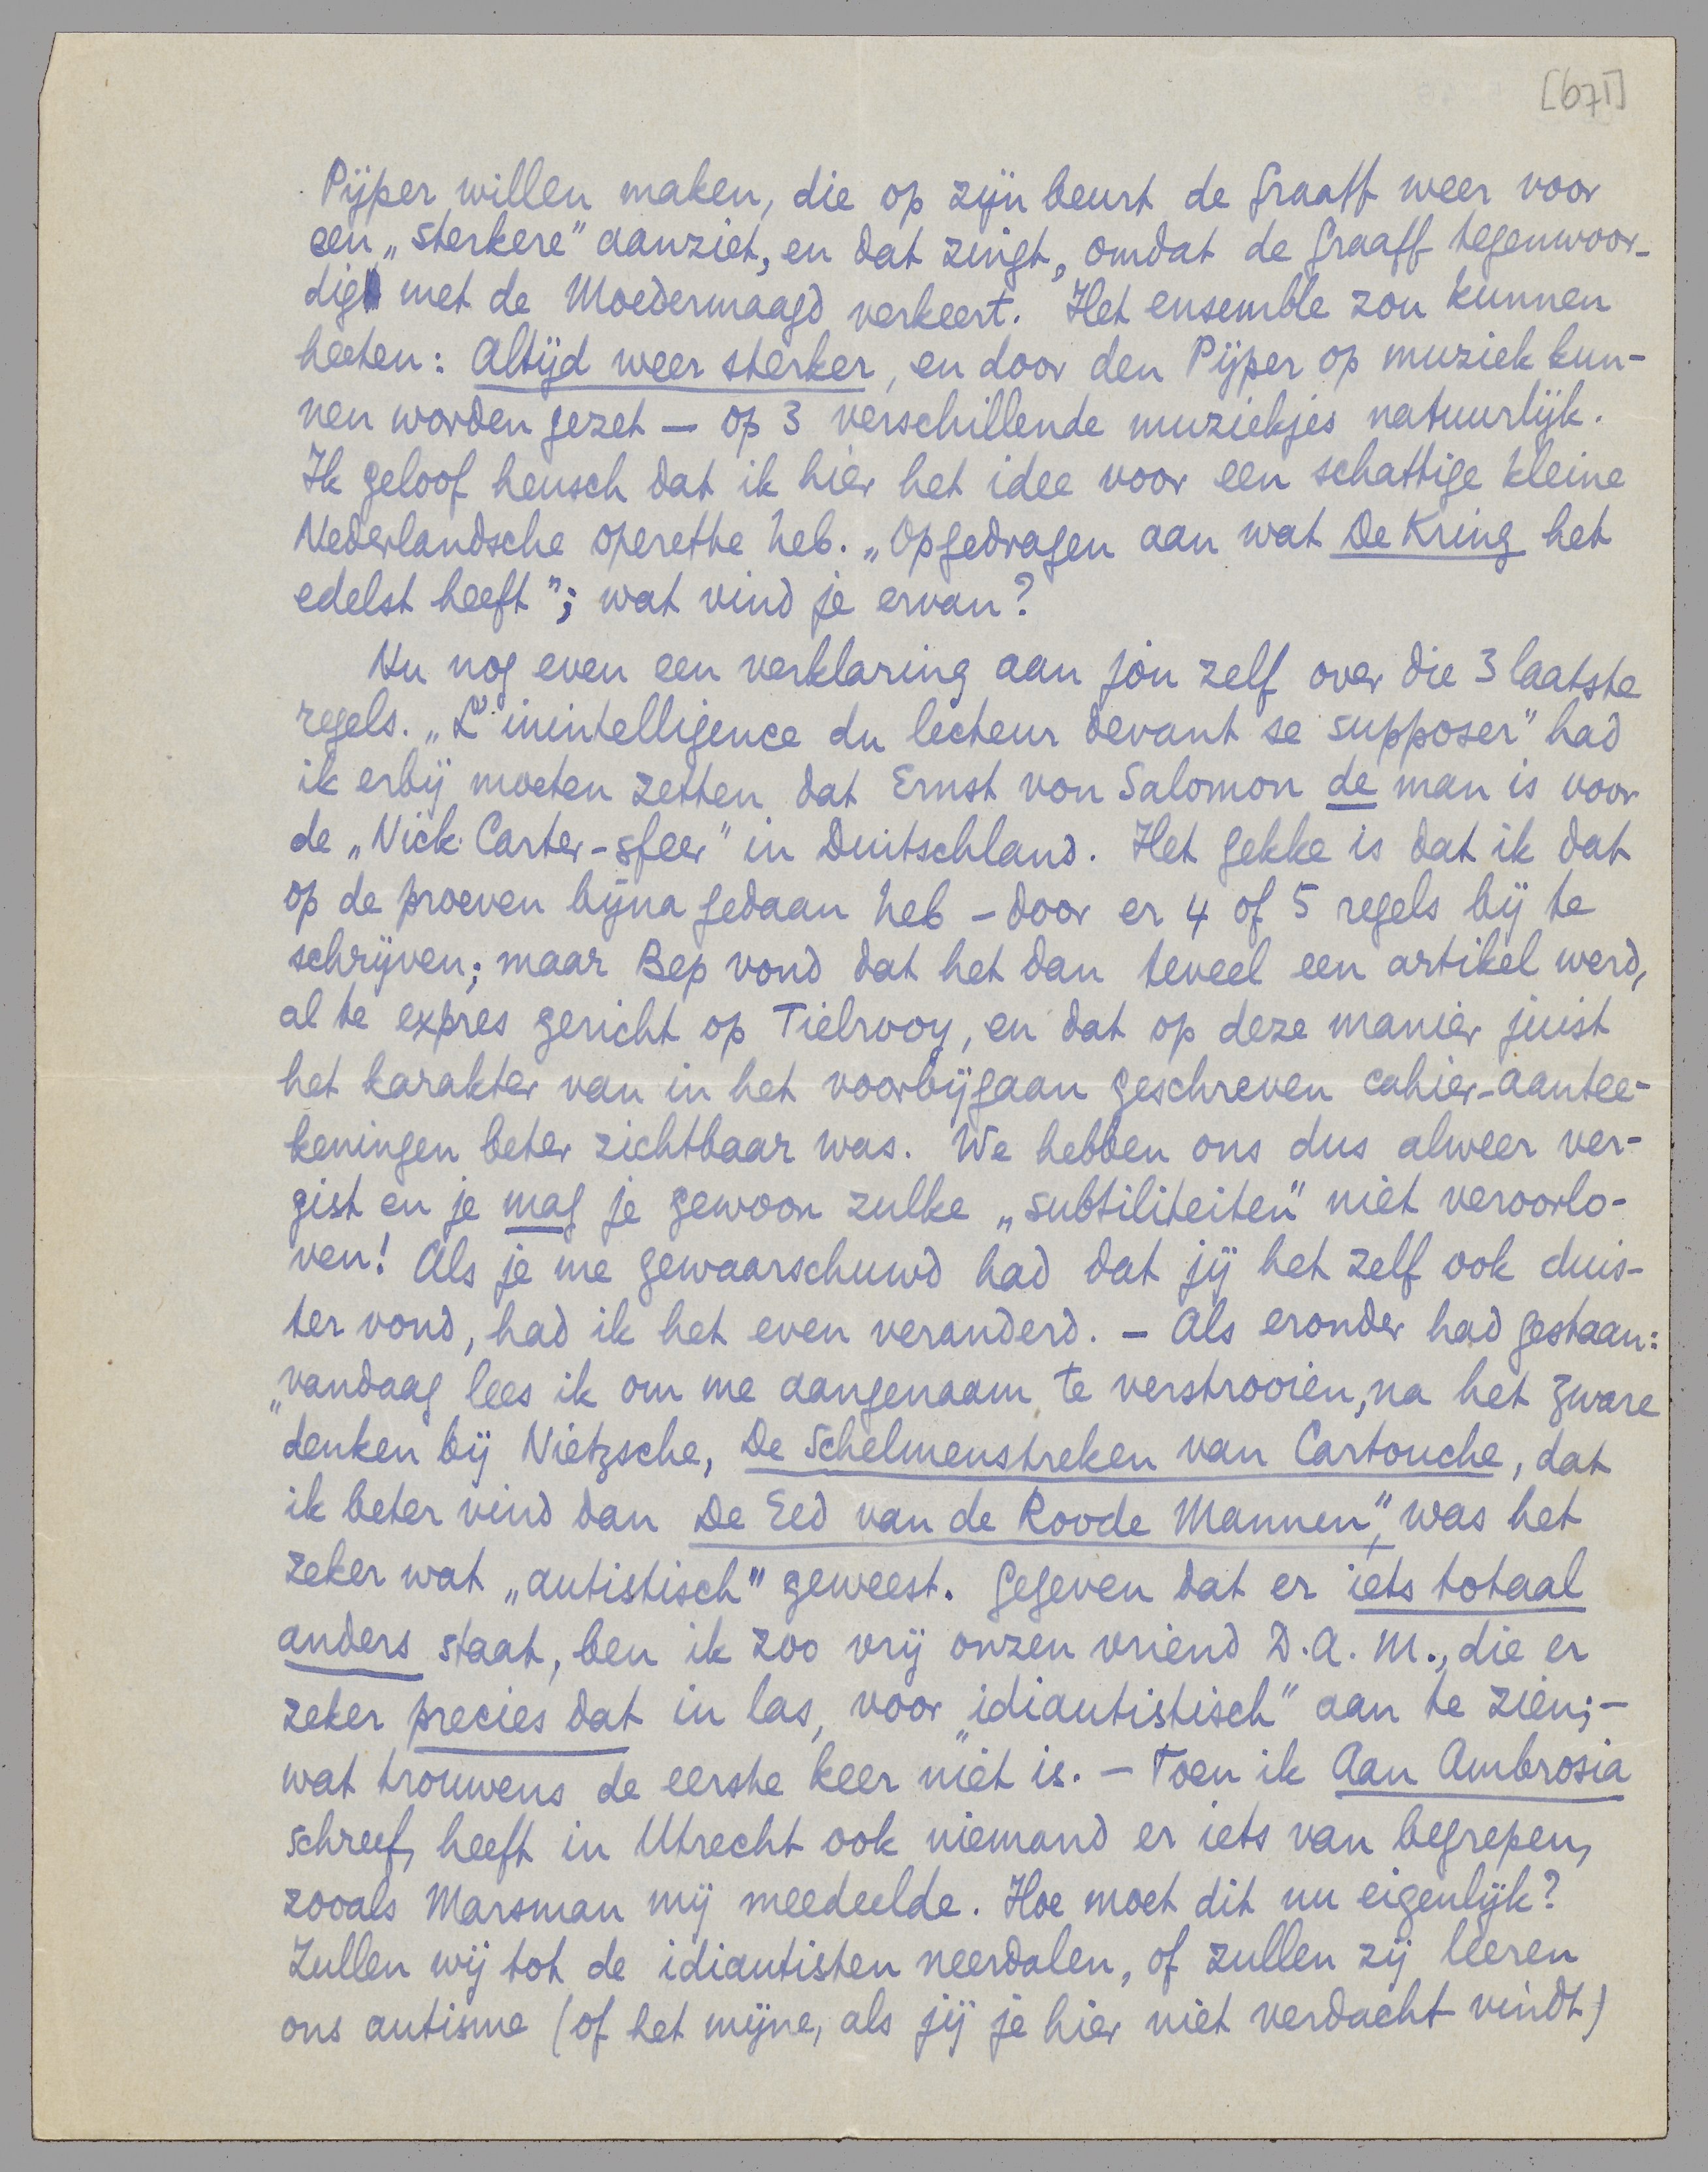 [671]
Pijper willen maken, die op zijn beurt de Graaff weer voor
een „sterkere” aanziet, en dat zingt, omdat de Graaff tegenwoor-
dig met de Moedermaagd verkeert. Het ensemble zou kunnen
heeten: Altijd weer sterker, en door den Pijper op muziek kun-
nen worden gezet — op 3 verschillende muziekjes natuurlijk.
Ik geloof heusch dat ik hier het idee voor een schattige kleine
Nederlandsche operette heb. „Opgedragen aan wat De Kring het
edelst heeft”; wat vind je ervan?
Nu nog even een verklaring aan jou zelf over die 3 laatste
regels. „L'inintelligence du lecteur devant se supposer” had
ik erbij moeten zetten dat Ernst von Salomon de man is voor
de „Nick Carter-sfeer” in Duitschland. Het gekke is dat ik dat
op de proeven bijna gedaan heb – door er 4 of 5 regels bij te
schrijven; maar Bep vond dat het dan teveel een artikel werd,
al te expres gericht op Tielrooy, en dat op deze manier juist
het karakter van in het voorbijgaan geschreven cahier-aantee-
keningen beter zichtbaar was. We hebben ons dus alweer ver-
gist en je mag je gewoon zulke „subtiliteiten” niet veroorlo-
ven! Als je me gewaarschuwd had dat jij het zelf ook duis-
ter vond, had ik het even veranderd. – Als eronder had gestaan:
„vandaag lees ik om me aangenaam te verstrooien, na het zware
denken bij Nietzsche, De Schelmenstreken van Cartouche, dat
ik beter vind dan De Eed van de Roode Mannen”, was het
zeker wat „autistisch” geweest. Gegeven dat er iets totaal
anders staat, ben ik zoo vrij onzen vriend D.A.M., die er
zeker precies dat in las, voor „idiautistisch” aan te zien; –
wat trouwens de eerste keer niet is. – Toen ik Aan Ambrosia
schreef, heeft in Utrecht ook niemand er iets van begrepen,
zooals Marsman mij meedeelde. Hoe moet dit nu eigenlijk?
Zullen wij tot de idiautisten neerdalen, of zullen zij leeren
ons autisme (of het mijne, als jij je hier niet verdacht vindt)